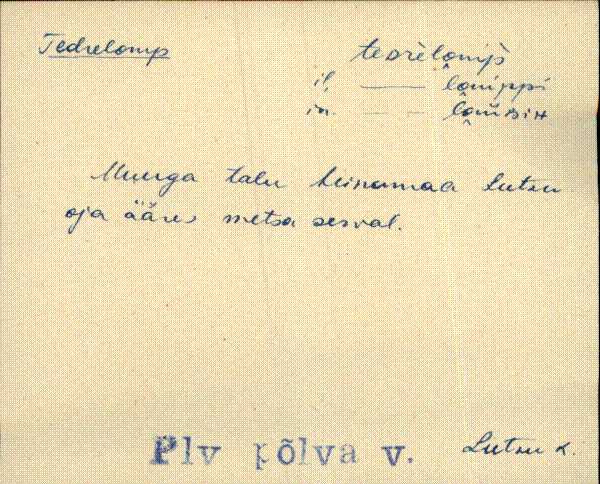 Tedrelomp
teᴅrèlomp̀
il. —— lomìppi
in. —— lomʙiн
Muuga talu heinamaa Lutsu
oja ääres metsa serval.
Plv põlva v.
Lutsu k.